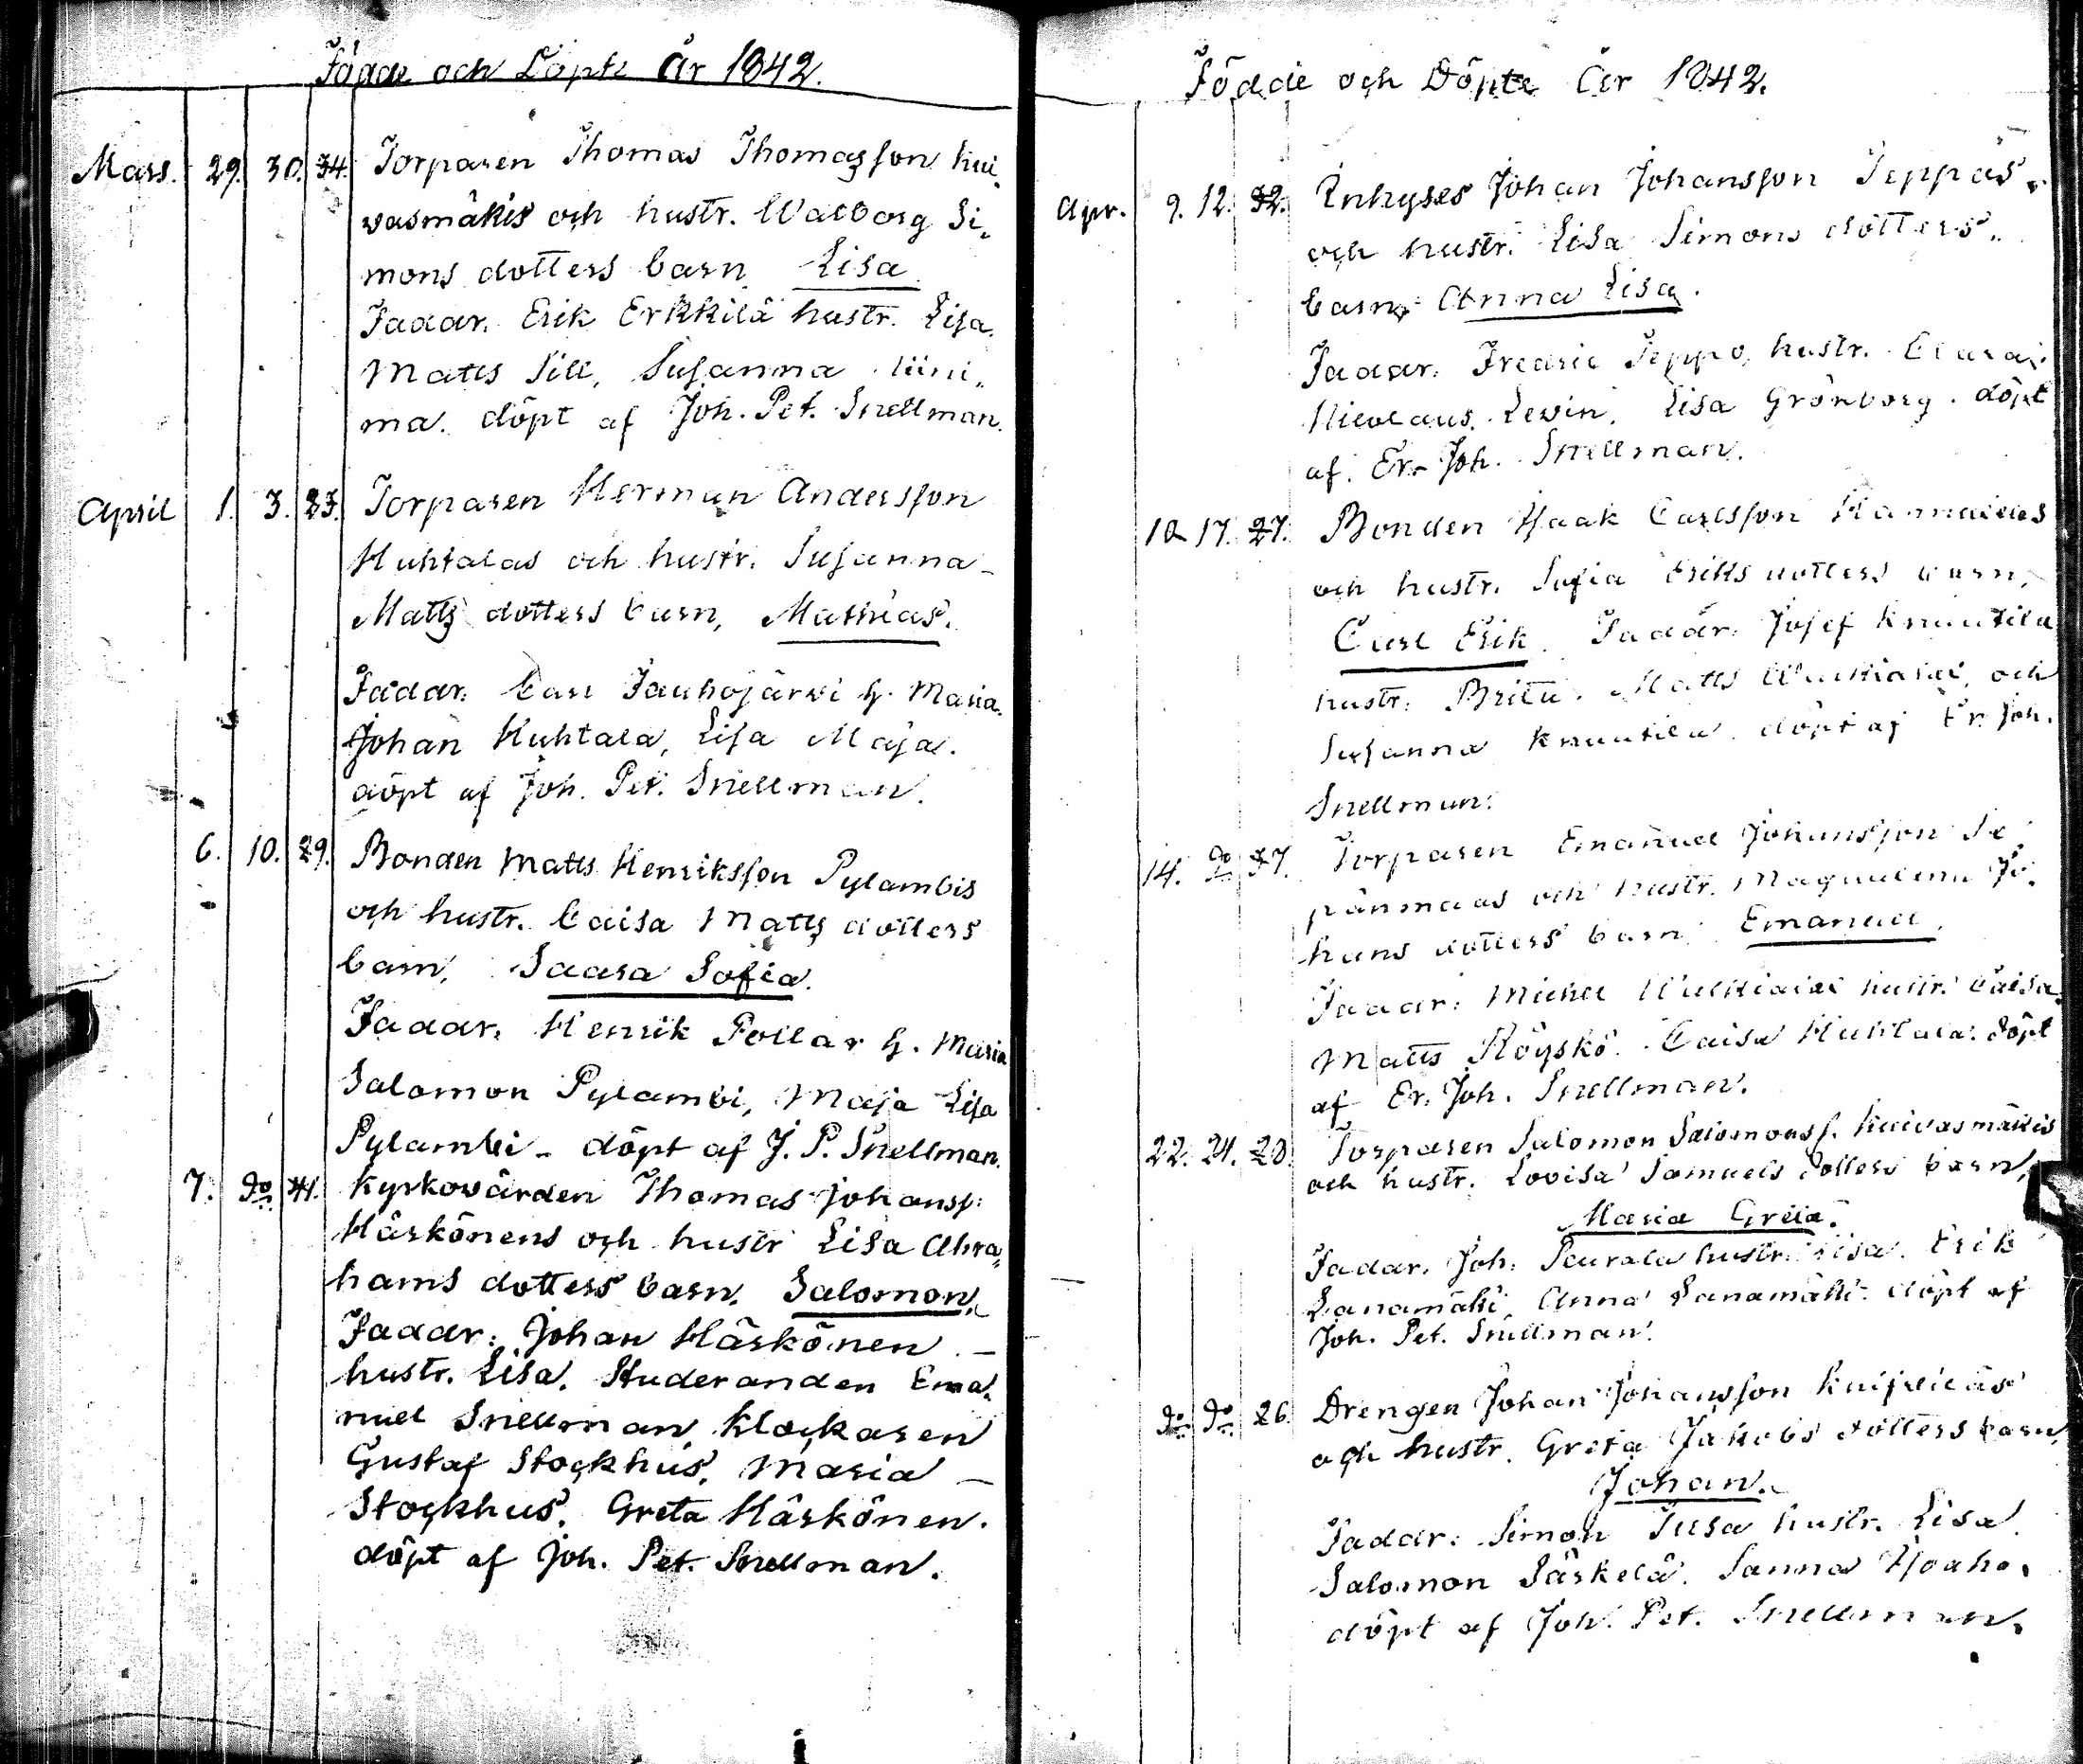 Födde och Döpte År 1842.
Mars. 29. 30. 34. Torparen Thomas Thomasson Kui„
vasmäkis och hustr. Walborg Si„
mons dotters barn Lisa
Faddr. Erik Erkkilä hustr. Lisa.
Matts Sill, Susanna Niini„
ma. döpt af Joh. Pet. Snellman.
April 1. 3. 23. Torparen Herman Andersson
Huhtalas och hustr. Susanna
Matts dotters barn, Mathias.
Faddr. Carl Jauhojärvi h. Maria.
Johan Huhtala, Lisa Maja.
döpt af Joh. Pet. Snellman.
6. 10. 29. Bonden Matts Henriksson Pylambis
och hustr. Caisa Matts dotters
barn, Saara Sofia.
Faddr. Henrik Pollar h. Maria
Salomon Pylambi, Maja Lisa
Pylambi - döpt af J. P. Snellman.
7. do 41. Kyrkovärden Thomas Johanss:
Härkönens och hustr Lisa Abra„
hams dotters barn. Salomon.
Faddr: Johan Härkönen –
hustr. Lisa. Studeranden Ema„
nuel Snellman, Klockaren
Gustaf Stockhus, Maria –
Stockhus. Greta Härkönen.
döpt af Joh. Pet. Snellman.
Födde och Döpte År 1842.
Apr. 9. 12. 32. Inhyses Johan Johansson Seppäs
och hustr. Lisa Simons dotters
barn Anna Lisa.
Faddr. Fredric Seppo, hustr. Clara.
Nicolaus Levin, Lisa Grönborg. döpt
af. Er. Joh. Snellman.
10 17. 27. Bonden Isaak Carlsson
och hustr. Sofia Eriks dotters barn,
Carl Erik. Faddr. Josef Knuutila
hustr. Brita. Matts och
Susanna Knuutila. döpt af Er. Joh.
Snellman.
14. do 37. Torparen Emanuel Johansson Se„
pänmaas och hustr. Magdalena Jo„
hans dotters barn Emanuel.
Faddr: Michel hustr. Caisa.
Matts Röyskö. Caisa Huhtala. döpt
af Er. Joh. Snellman.
22. 24. 28. Torparen Salomon Salomonss. Kuivasmäkis
och hustr. Lovisa Samuels dotters barn,
Maria Greta.
Faddr. Joh. Peurala hustr. Lisa. Erik
Lanamäki, Anna Lanamäki. döpt af
Joh. Pet. Snellman.
do do 26. Drengen Johan Johansson Knifviläs
och hustr. Greta Jakobs dotters barn,
Johan.
Faddr: Simon Tusa hustr. Lisa.
Salomon Särkelä. Sanna Isoaho.
döpt af Joh. Pet. Snellman.